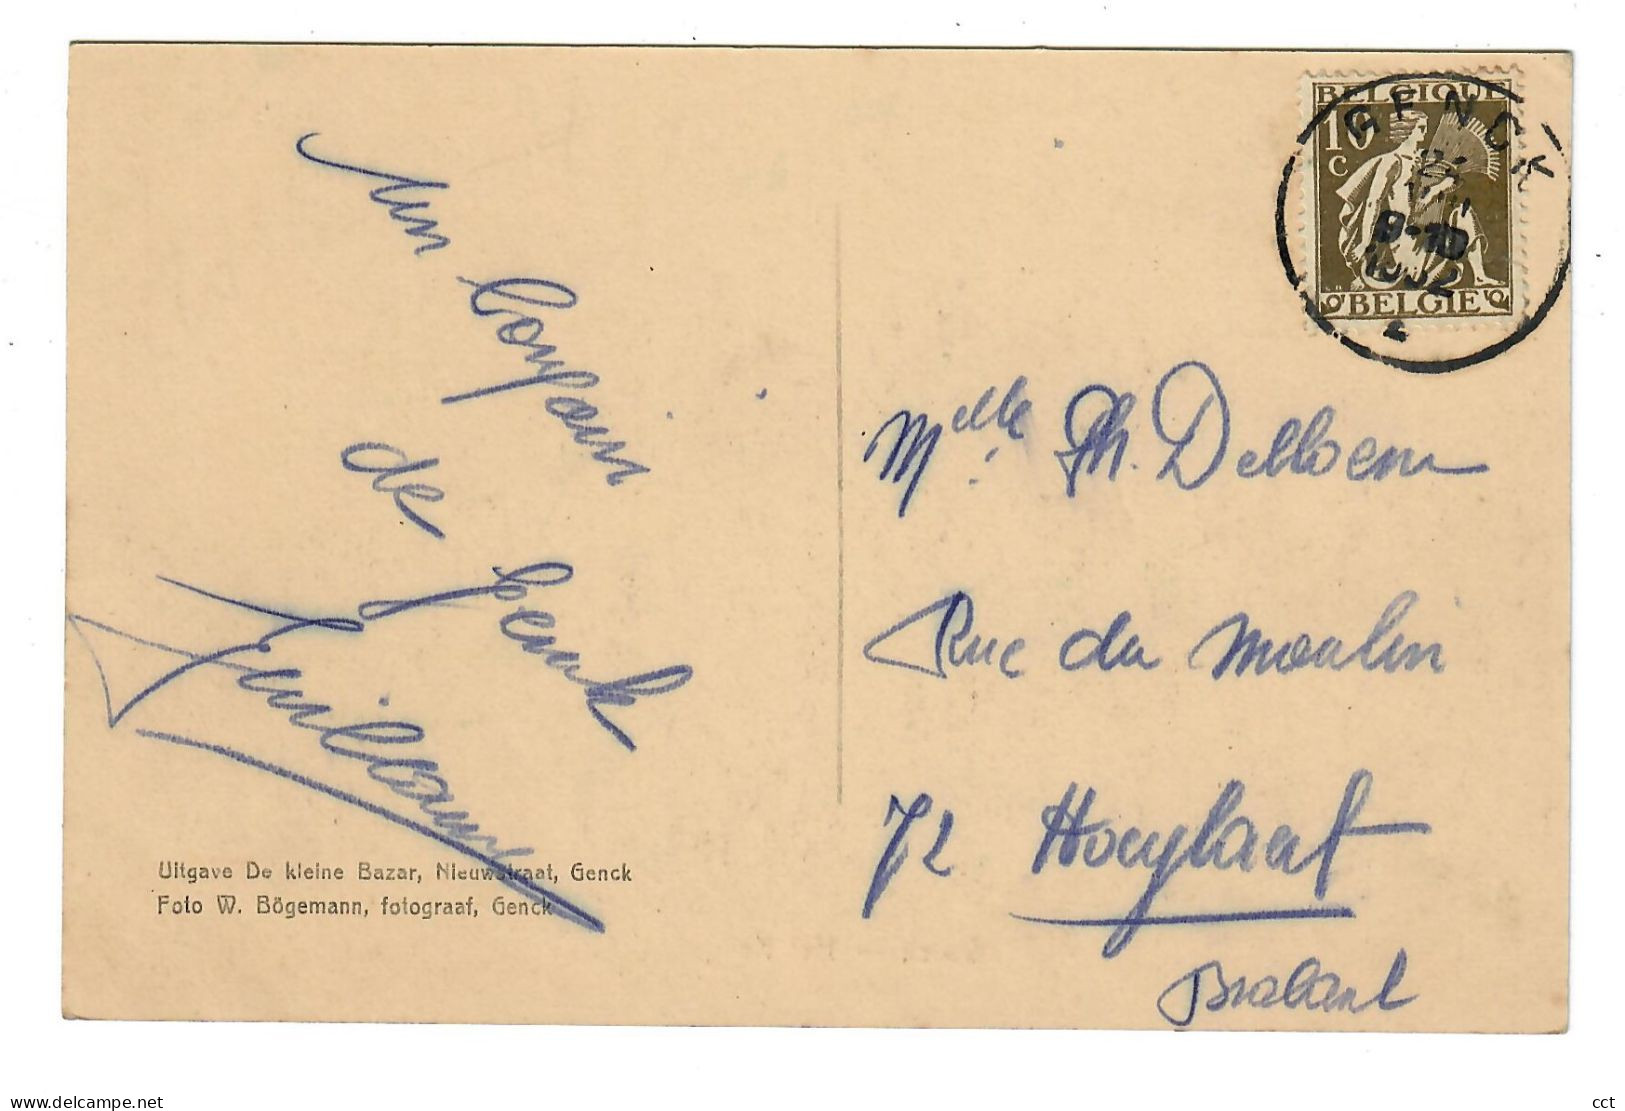 Un Copain
de Genck
Guillaume
Uitgave De kleine Bazar, Nieuwstraat, Genck
Foto W. Bögemann, fotograaf, Genck
BELGIQUE
10
C
BELGIE
GENCK
9-10
1932
2
Melle Ph. Delloem
Rue du Moulin
72 Hoeylaert
Brabant
www.delcampe.net
cct